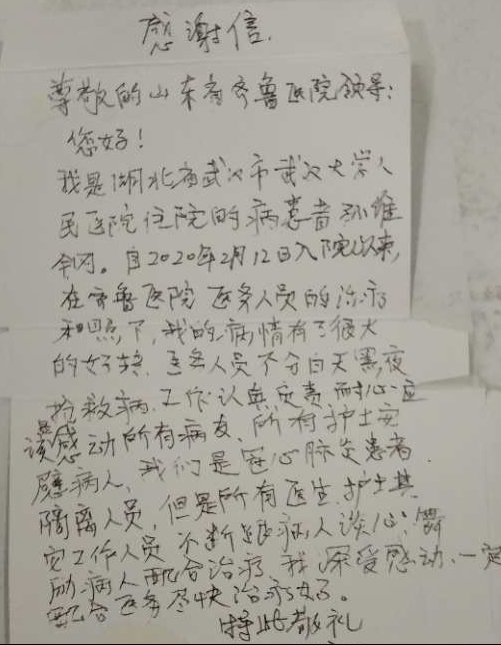 感谢信.
尊敬的山东省齐鲁医院领导:
您好!
我是湖北省武汉市武汉大学人
民医院住院的病患者孙维
自2020年2月12日入院以来,
在齐鲁医院医务人员的治疗
和照下,我的病情有了很大
的好转.医务人员不分白天黑夜
抢救病.工作认真负责耐心应
该感动所有病友.所有护士
病人,我们是冠心肺炎患者.
隔离人员,但是所有医生.护士其
它工作人员不断给病人谈心.
励病人配合治疗.我深受感动.一定
配合医务尽快治疗好.
特此敬礼